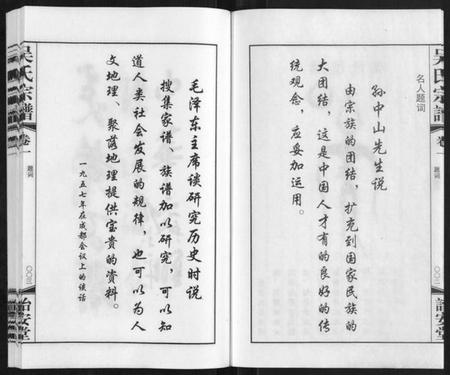 吴氏宗谱
卷一
名人题词
〇〇三
詒安堂
孙中山先生说
由宗族的团结，扩充到国家民族的
大团结，这是中国人才有的良好的传
统观念，应妥加运用。
毛泽东主席谈研究历史时说
搜集家谱、族谱加以研究，可以知
道人类社会发展的规律，也可以为人
文地理、聚落地理提供宝贵的资料。
一九五七年在成都会议上的谈话
吴氏宗谱
卷一
题词
詒安堂